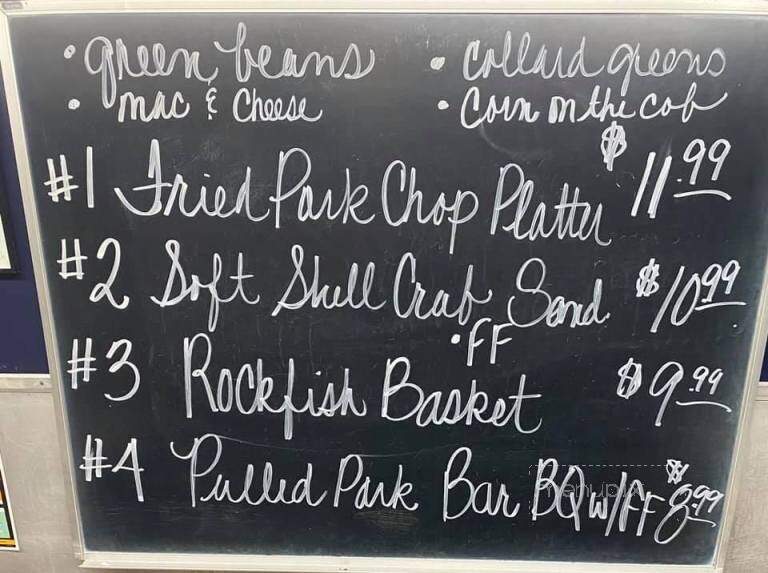 • green beans • collard greens
• mac & Cheese • Corn on the cob
#1 Fried Pork Chop Platter $11.99
#2 Soft Shell Crab Sand. $10.99
• FF
#3 Rockfish Basket $9.99
#4 Pulled Pork Bar BQ w/FF $8.99
menupix